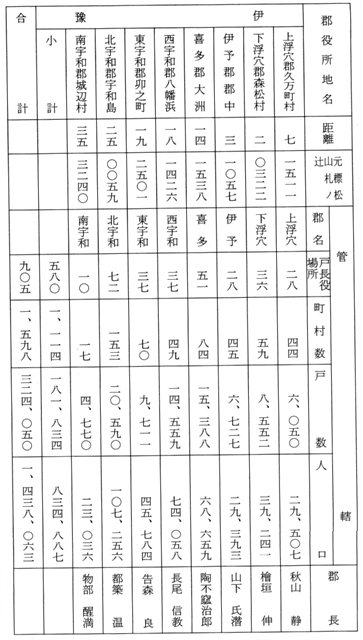 郡役所地名 距離 元標松山札ノ辻 管轄 郡名 戸長役場所 町村数 戸数 人口 郡長
伊豫
上浮穴郡久万町村 七 一五二一 上浮穴 二八 四四 六、〇五〇 二九、五〇七 秋山 静
下浮穴郡森松村 二 〇三二二 下浮穴 三六 五九 八、五五二 三九、二四一 檜垣 伸
伊予郡郡中 三 一〇五七 伊予 二八 四五 六、七二七 二九、三九三 山下 氏潘
喜多郡大洲 一四 一五三八 喜多 五一 八四 一五、三八八 六八、六五九 陶不窳治郎
西宇和郡八幡浜 一八 一四二六 西宇和 三七 四九 一四、五五九 七四、〇五八 長尾 信教
東宇和郡卯之町 一九 二五〇一 東宇和 三七 七〇 九、七二一 四五、七八四 告森 良
北宇和郡宇和島 二五 〇〇五九 北宇和 七二 一五三 二〇、五九〇 一〇七、二五六 都築 温
南宇和郡城辺村 三五 三二四〇 南宇和 一〇 一七 四、七七〇 二三、〇三六 物部 醒満
小計 五八〇 一、一一四 一八一、八三四 八三四、八八七
合計 九〇五 一、五九八 三二四、〇五〇 一、四三八、〇六三